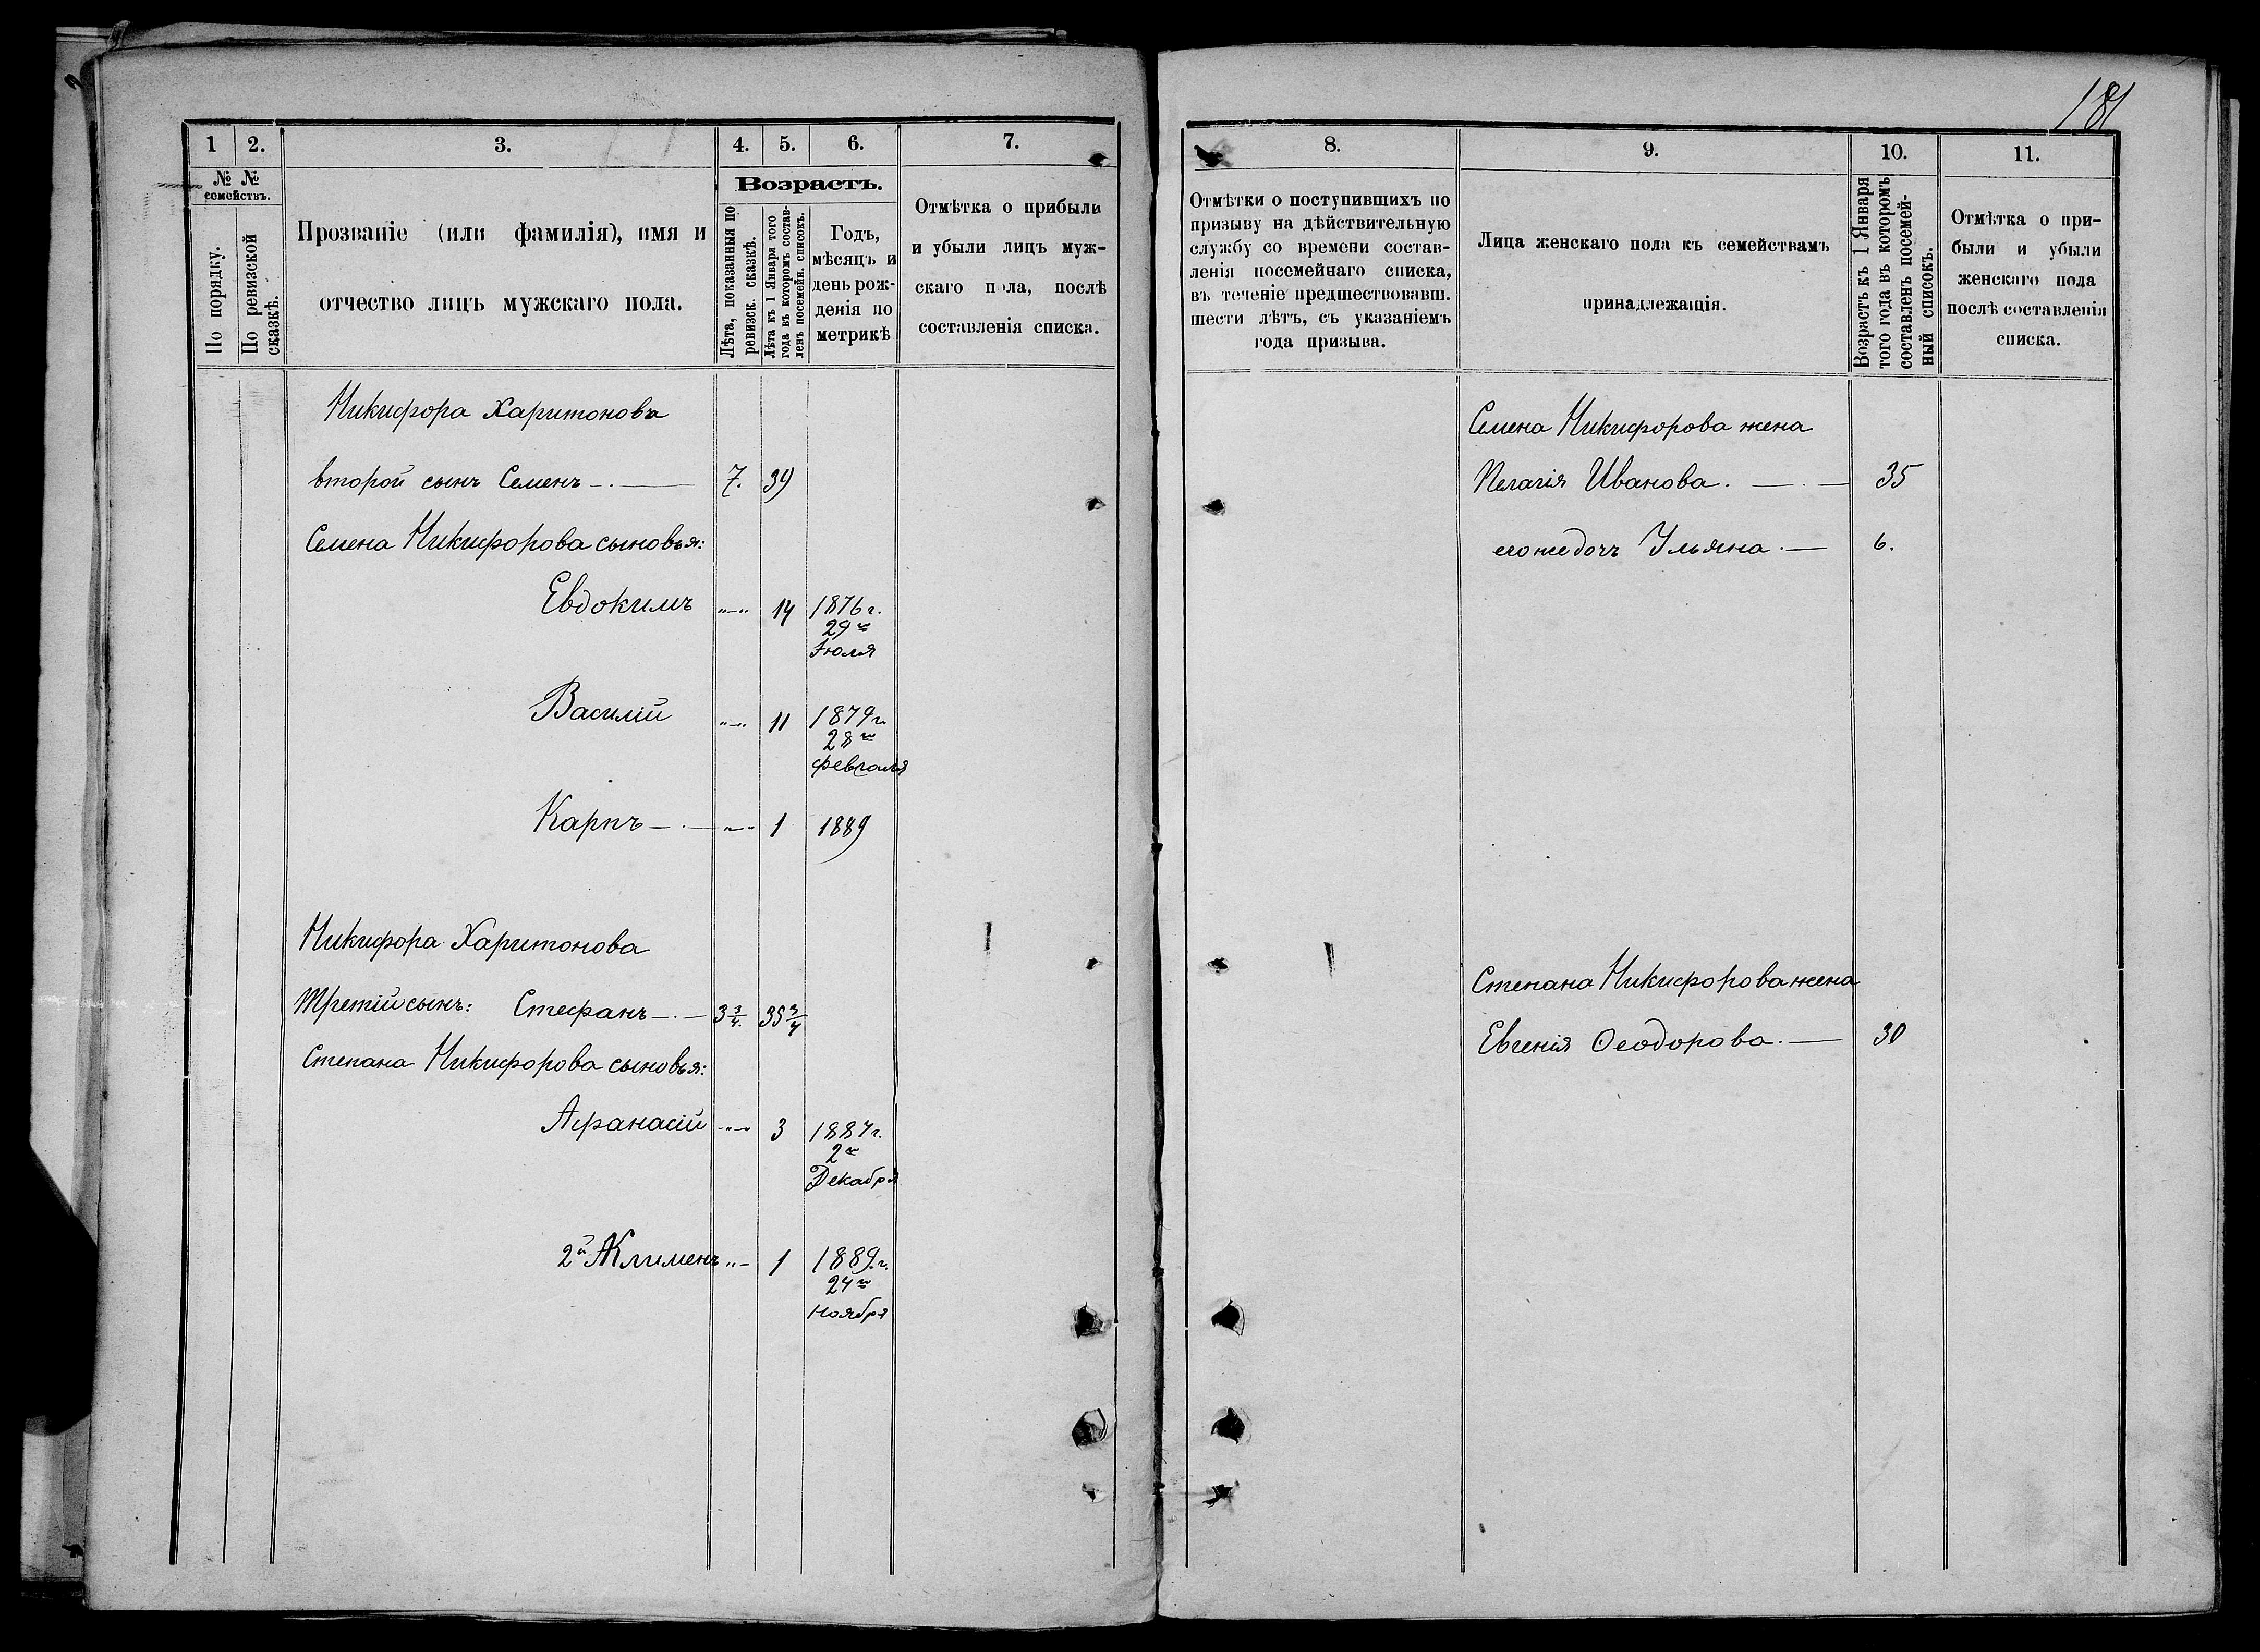 181
1 2. 3. 4. 5. 6. 7.
№ № семействъ.
По порядку.
По ревизской сказкѣ.
Прозваніе (или фамилія), имя и
отчество лицъ мужскаго пола.
Возрастъ.
Лѣта, показанныя по
ревизск. сказкѣ.
Лѣта къ 1 Января того
года въ которомъ состав-
ленъ посемейн. списокъ.
Годъ,
мѣсяцъ и
день рож-
денія по
метрикѣ
Отмѣтка о прибыли
и убыли лицъ муж-
скаго пола, послѣ
составленія списка.
Никифора Харитонова
второй сынъ Семенъ 7. 39
Семена Никифорова сыновья:
Евдокимъ 14 1876 г.
29го
Іюля
Василій 11 1879 г.
28го
февраля
Карпъ 1 1889
Никифора Харитонова
Третій сынъ: Стефанъ 3 3/4. 35 3/4
Степана Никифорова сыновья:
Афанасій 3 1887 г.
2го
Декабря
2й Клименъ 1 1889. г.
24го
Ноября
8. 9. 10. 11.
Отмѣтки о поступившихъ по
призыву на дѣйствительную
службу со времени состав-
ленія посемейнаго списка,
въ теченіе предшествовавш.
шести лѣтъ, съ указаніемъ
года призыва.
Лица женскаго пола къ семействамъ
принадлежащія.
Возрастъ къ 1 Января
того года въ которомъ
составленъ посемей-
ный списокъ.
Отмѣтка о при-
были и убыли
женскаго пола
послѣ составленія
списка.
Семена Никифорова жена
Пелагія Иванова. 35
его же дочъ Ульяна. 6.
Степана Никифорова жена
Евгенія Ѳеодорова. 30